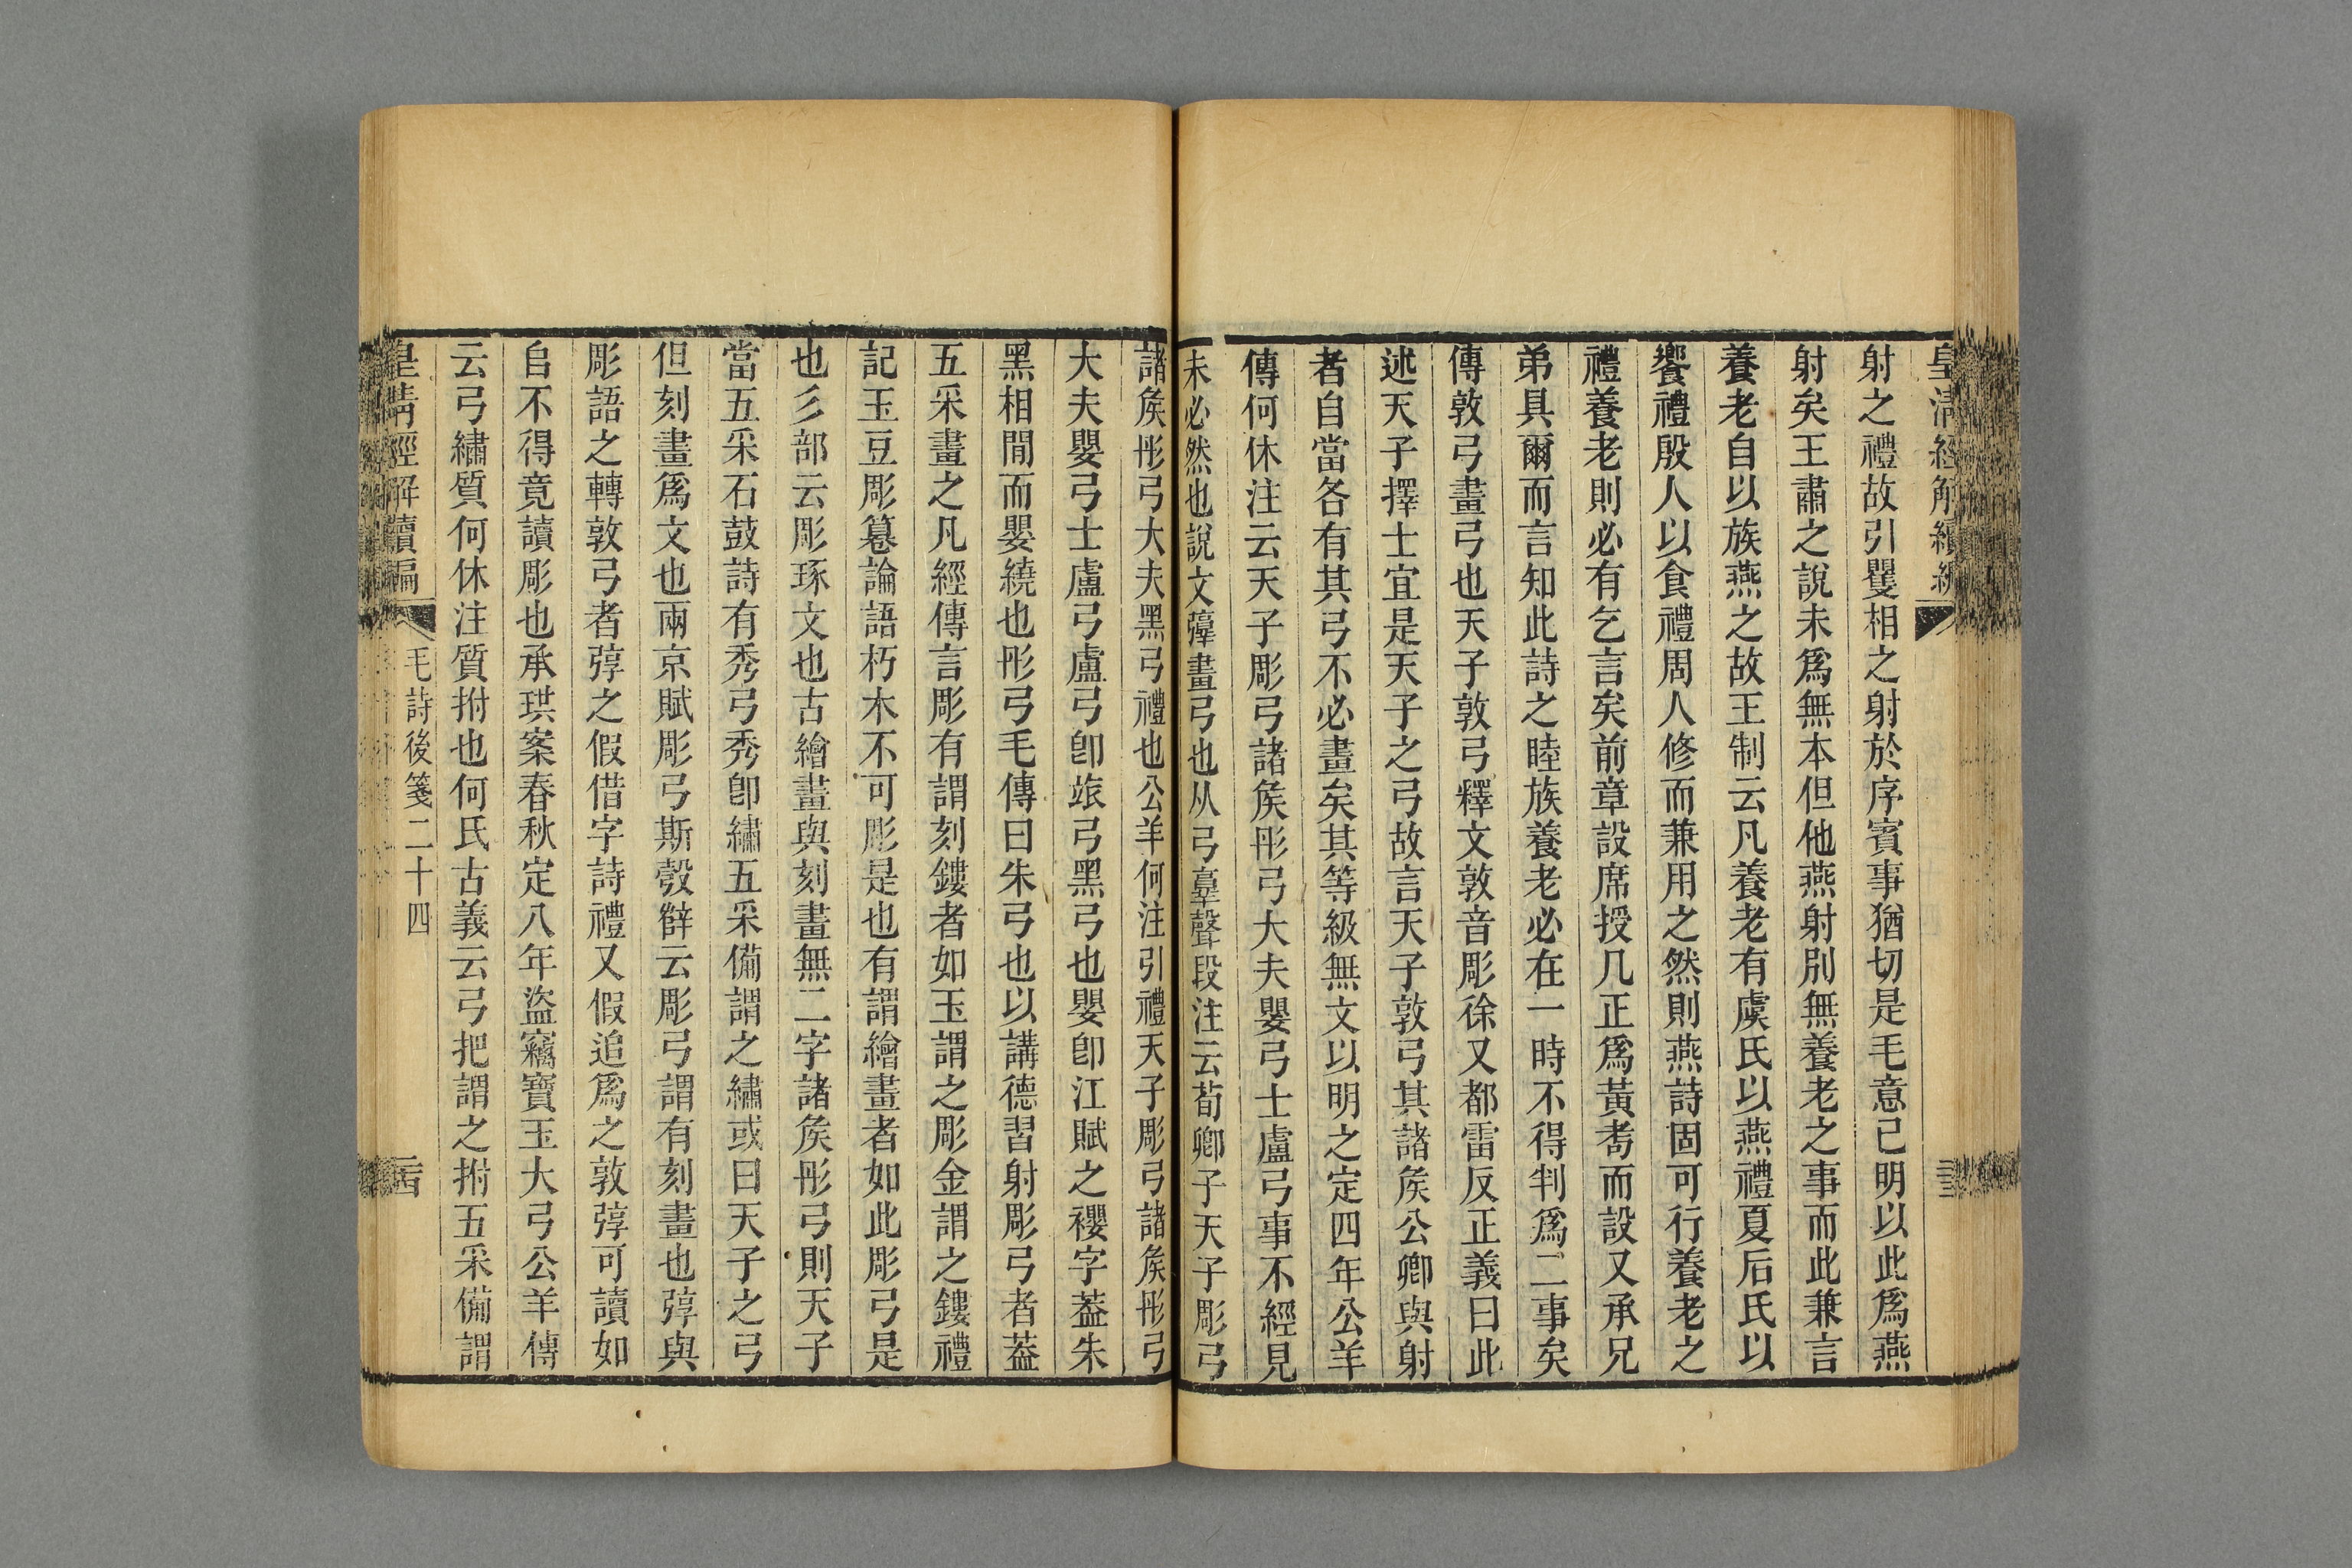 皇清經解續編
射之禮故引矍相之射於序賓事猶切是毛意已明以此爲燕
射矣王肅之說未爲無本但他燕射別無養老之事而此兼言
養老自以族燕之故王制云凡養老有虞氏以燕禮夏后氏以
饗禮殷人以食禮周人修而兼用之然則燕詩固可行養老之
禮養老則必有乞言矣前章設席授几正爲黃耇而設又承兄
弟具爾而言知此詩之睦族養老必在一時不得判爲二事矣
傳敦弓畫弓也天子敦弓釋文敦音彫徐又都雷反正義曰此
述天子擇士宜是天子之弓故言天子敦弓其諸矦公卿與射
者自當各有其弓不必畫矣其等級無文以明之定四年公羊
傳何休注云天子彫弓諸矦彤弓大夫嬰弓士盧弓事不經見
未必然也說文弴畫弓也从弓𦎫聲段注云荀卿子天子彫弓
諸矦彤弓大夫黑弓禮也公羊何注引禮天子彫弓諸矦彤弓
大夫嬰弓士盧弓盧弓卽玈弓黑弓也嬰卽江賦之禐字葢朱
黑相閒而嬰繞也彤弓毛傳曰朱弓也以講德習射彫弓者葢
五采畫之凡經傳言彫有謂刻鏤者如玉謂之彫金謂之鏤禮
記玉豆彫篹論語朽木不可彫是也有謂繪畫者如此彫弓是
也彡部云彫琢文也古繪畫與刻畫無二字諸矦彤弓則天子
當五采石鼓詩有秀弓秀卽繡五采備謂之繡或曰天子之弓
但刻畫爲文也兩京賦彫弓斯彀薛云彫弓謂有刻畫也弴與
彫語之轉敦弓者弴之假借字詩禮又假追爲之敦弴可讀如
自不得竟讀彫也承珙案春秋定八年盜竊寶玉大弓公羊傳
云弓繡質何休注質拊也何氏古義云弓把謂之拊五采備謂
皇清經解續編
毛詩後箋二十四